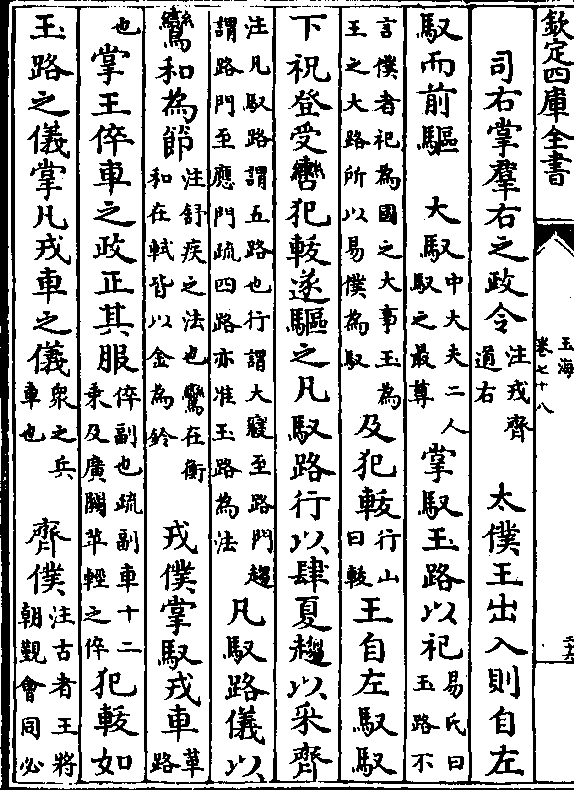 欽定四庫全書
玉海
卷七十八
司右掌羣右之政令注戎齊道右 太僕王出入則自左
馭而前驅 大馭中大夫二人馭之最尊掌馭玉路以祀易氏曰玉路不
言僕者祀為國之大事玉為王之大路所以易僕為馭及犯軷行山曰軷王自左馭馭
下祝登受轡犯軷遂驅之凡馭路行以肆夏趨以采齊
注凡馭路謂五路也行謂大寢至路門趨謂路門至應門疏四路亦准玉路為法凡馭路儀以
鸞和為節注舒疾之法也鸞在衡和在軾皆以金為鈴 戎僕掌馭戎車革路
也掌王倅車之政正其服倅副也疏副車十二乘及廣闕革輕之倅犯軷如
玉路之儀掌凡戎車之儀衆之兵車也 齊僕注古者王將朝覲會同必